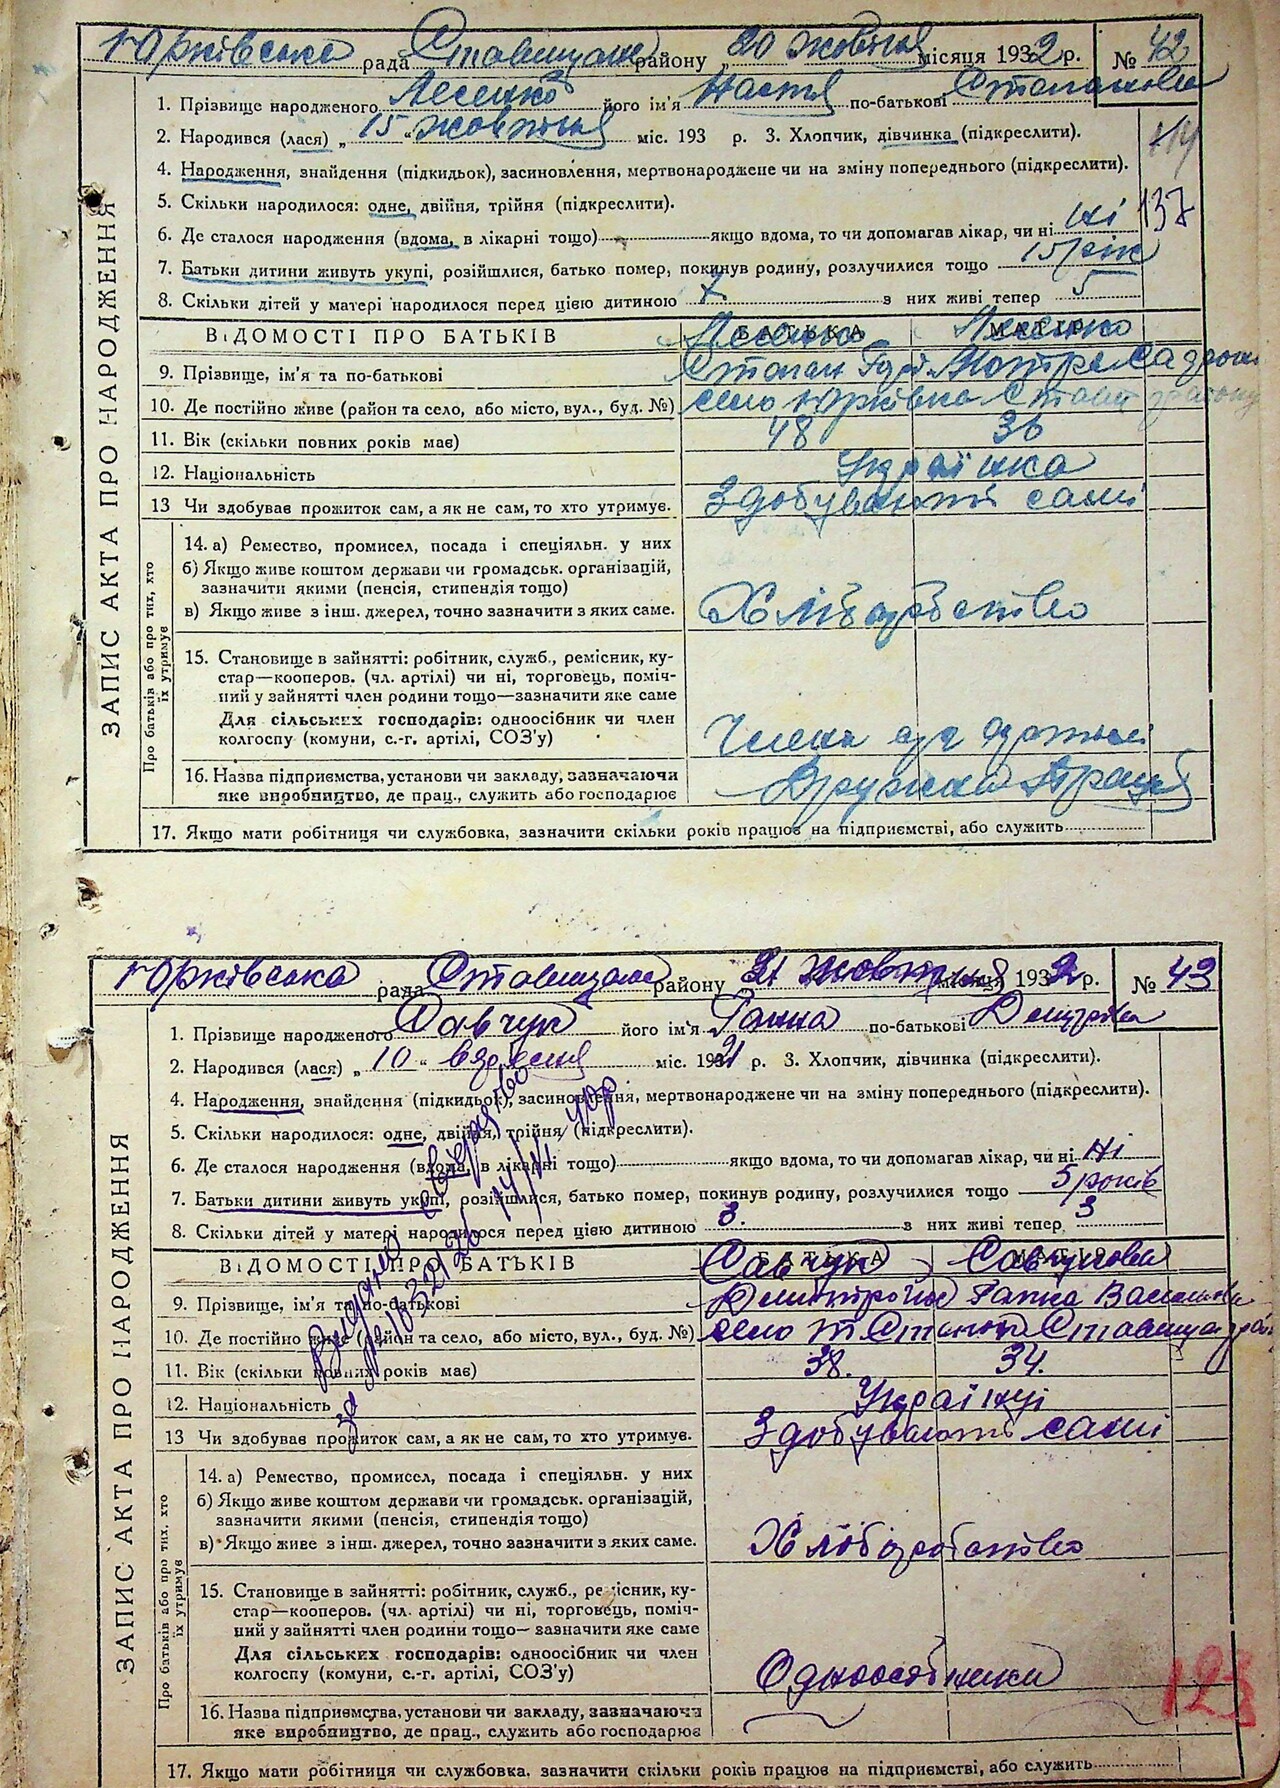 Юрківська рада Ставищанс району „20 жовтня місяця 1932 р. № 42
1. Прізвище народженого Лесенко його ім'я Настя по-батькові Степановн
2. Народився (лася) „15" жовтня міс. 193 р. 3. Хлопчик, дівчинка (підкреслити).
4. Народження, знайдення (підкидьок), засиновлення, мертвонароджене чи на зміну попереднього (підкреслити).
5. Скільки народилося: одне, двійня, трійня (підкреслити).
137
6. Де сталося народження (вдома, в лікарні тощо) якщо вдома, то чи допомагав лікар, чи ні ні
7. Батьки дитини живуть укупі, розійшлися, батько помер, покинув родину, розлучилися тощо 15 рік
8. Скільки дітей у матері народилося перед цією дитиною 7 з них живі тепер 5
ВІДОМОСТІ ПРО БАТЬКІВ БАТЬКА МАТІР
Лесенко Лесенко
9. Прізвище, ім'я та по-батькові Степан
10. Де постійно живе (район та село, або місто, вул., буд. №) село Юрківка Ставищ району
11. Вік (скільки повних років має) 48 36
12. Національність Українка
13 Чи здобуває прожиток сам, а як не сам, то хто утримує. Здобувають самі
ЗАПИС АКТА ПРО НАРОДЖЕННЯ
Про батьків або про тих, хто їх утримує
14. а) Ремество, промисел, посада і спеціяльн. у них
б) Якщо живе коштом держави чи громадськ. організацій,
зазначити якими (пенсія, стипендія тощо)
в) Якщо живе з інш. джерел, точно зазначити з яких саме. Хліборобство
15. Становище в зайнятті: робітник, служб., ремісник, ку-
стар—кооперов. (чл. артілі) чи ні, торговець, поміч-
ний у зайнятті член родини тощо—зазначити яке саме
Для сільських господарів: одноосібник чи член
колгоспу (комуни, с.-г. артілі, СОЗ'у) Члени артілі
16. Назва підприємства, установи чи закладу, зазначаючи
яке виробництво, де прац., служить або господарює Дружна Праця
17. Якщо мати робітниця чи службовка, зазначити скільки років працює на підприємстві, або служить
Юрківська рада Ставищанс району „21 жовтня місяця 1932 р. № 43
1. Прізвище народженого Савчук його ім'я Ганна по-батькові Дмитрівн
2. Народився (лася) „10" вересня міс. 1931 р. 3. Хлопчик, дівчинка (підкреслити).
4. Народження, знайдення (підкидьок), засиновлення, мертвонароджене чи на зміну попереднього (підкреслити).
5. Скільки народилося: одне, двійня, трійня (підкреслити).
6. Де сталося народження (вдома, в лікарні тощо) якщо вдома, то чи допомагав лікар, чи ні ні
7. Батьки дитини живуть укупі, розійшлися, батько помер, покинув родину, розлучилися тощо 5 років
8. Скільки дітей у матері народилося перед цією дитиною 3. з них живі тепер 3
ВІДОМОСТІ ПРО БАТЬКІВ БАТЬКА МАТІР
Савчук Савчукова
9. Прізвище, ім'я та по-батькові Ганна
10. Де постійно живе (район та село, або місто, вул., буд. №) село
11. Вік (скільки повних років має) 38. 34.
12. Національність Українці
13 Чи здобуває прожиток сам, а як не сам, то хто утримує. Здобувають самі
Видано свідоцтво
за №
ЗАПИС АКТА ПРО НАРОДЖЕННЯ
Про батьків або про тих, хто їх утримує
14. а) Ремество, промисел, посада і спеціяльн. у них
б) Якщо живе коштом держави чи громадськ. організацій,
зазначити якими (пенсія, стипендія тощо)
в) Якщо живе з інш. джерел, точно зазначити з яких саме. Хліборобство
15. Становище в зайнятті: робітник, служб., ремісник, ку-
стар—кооперов. (чл. артілі) чи ні, торговець, поміч-
ний у зайнятті член родини тощо—зазначити яке саме
Для сільських господарів: одноосібник чи член
колгоспу (комуни, с.-г. артілі, СОЗ'у) Одноосібники
123
16. Назва підприємства, установи чи закладу, зазначаючи
яке виробництво, де прац., служить або господарює
17. Якщо мати робітниця чи службовка, зазначити скільки років працює на підприємстві, або служить